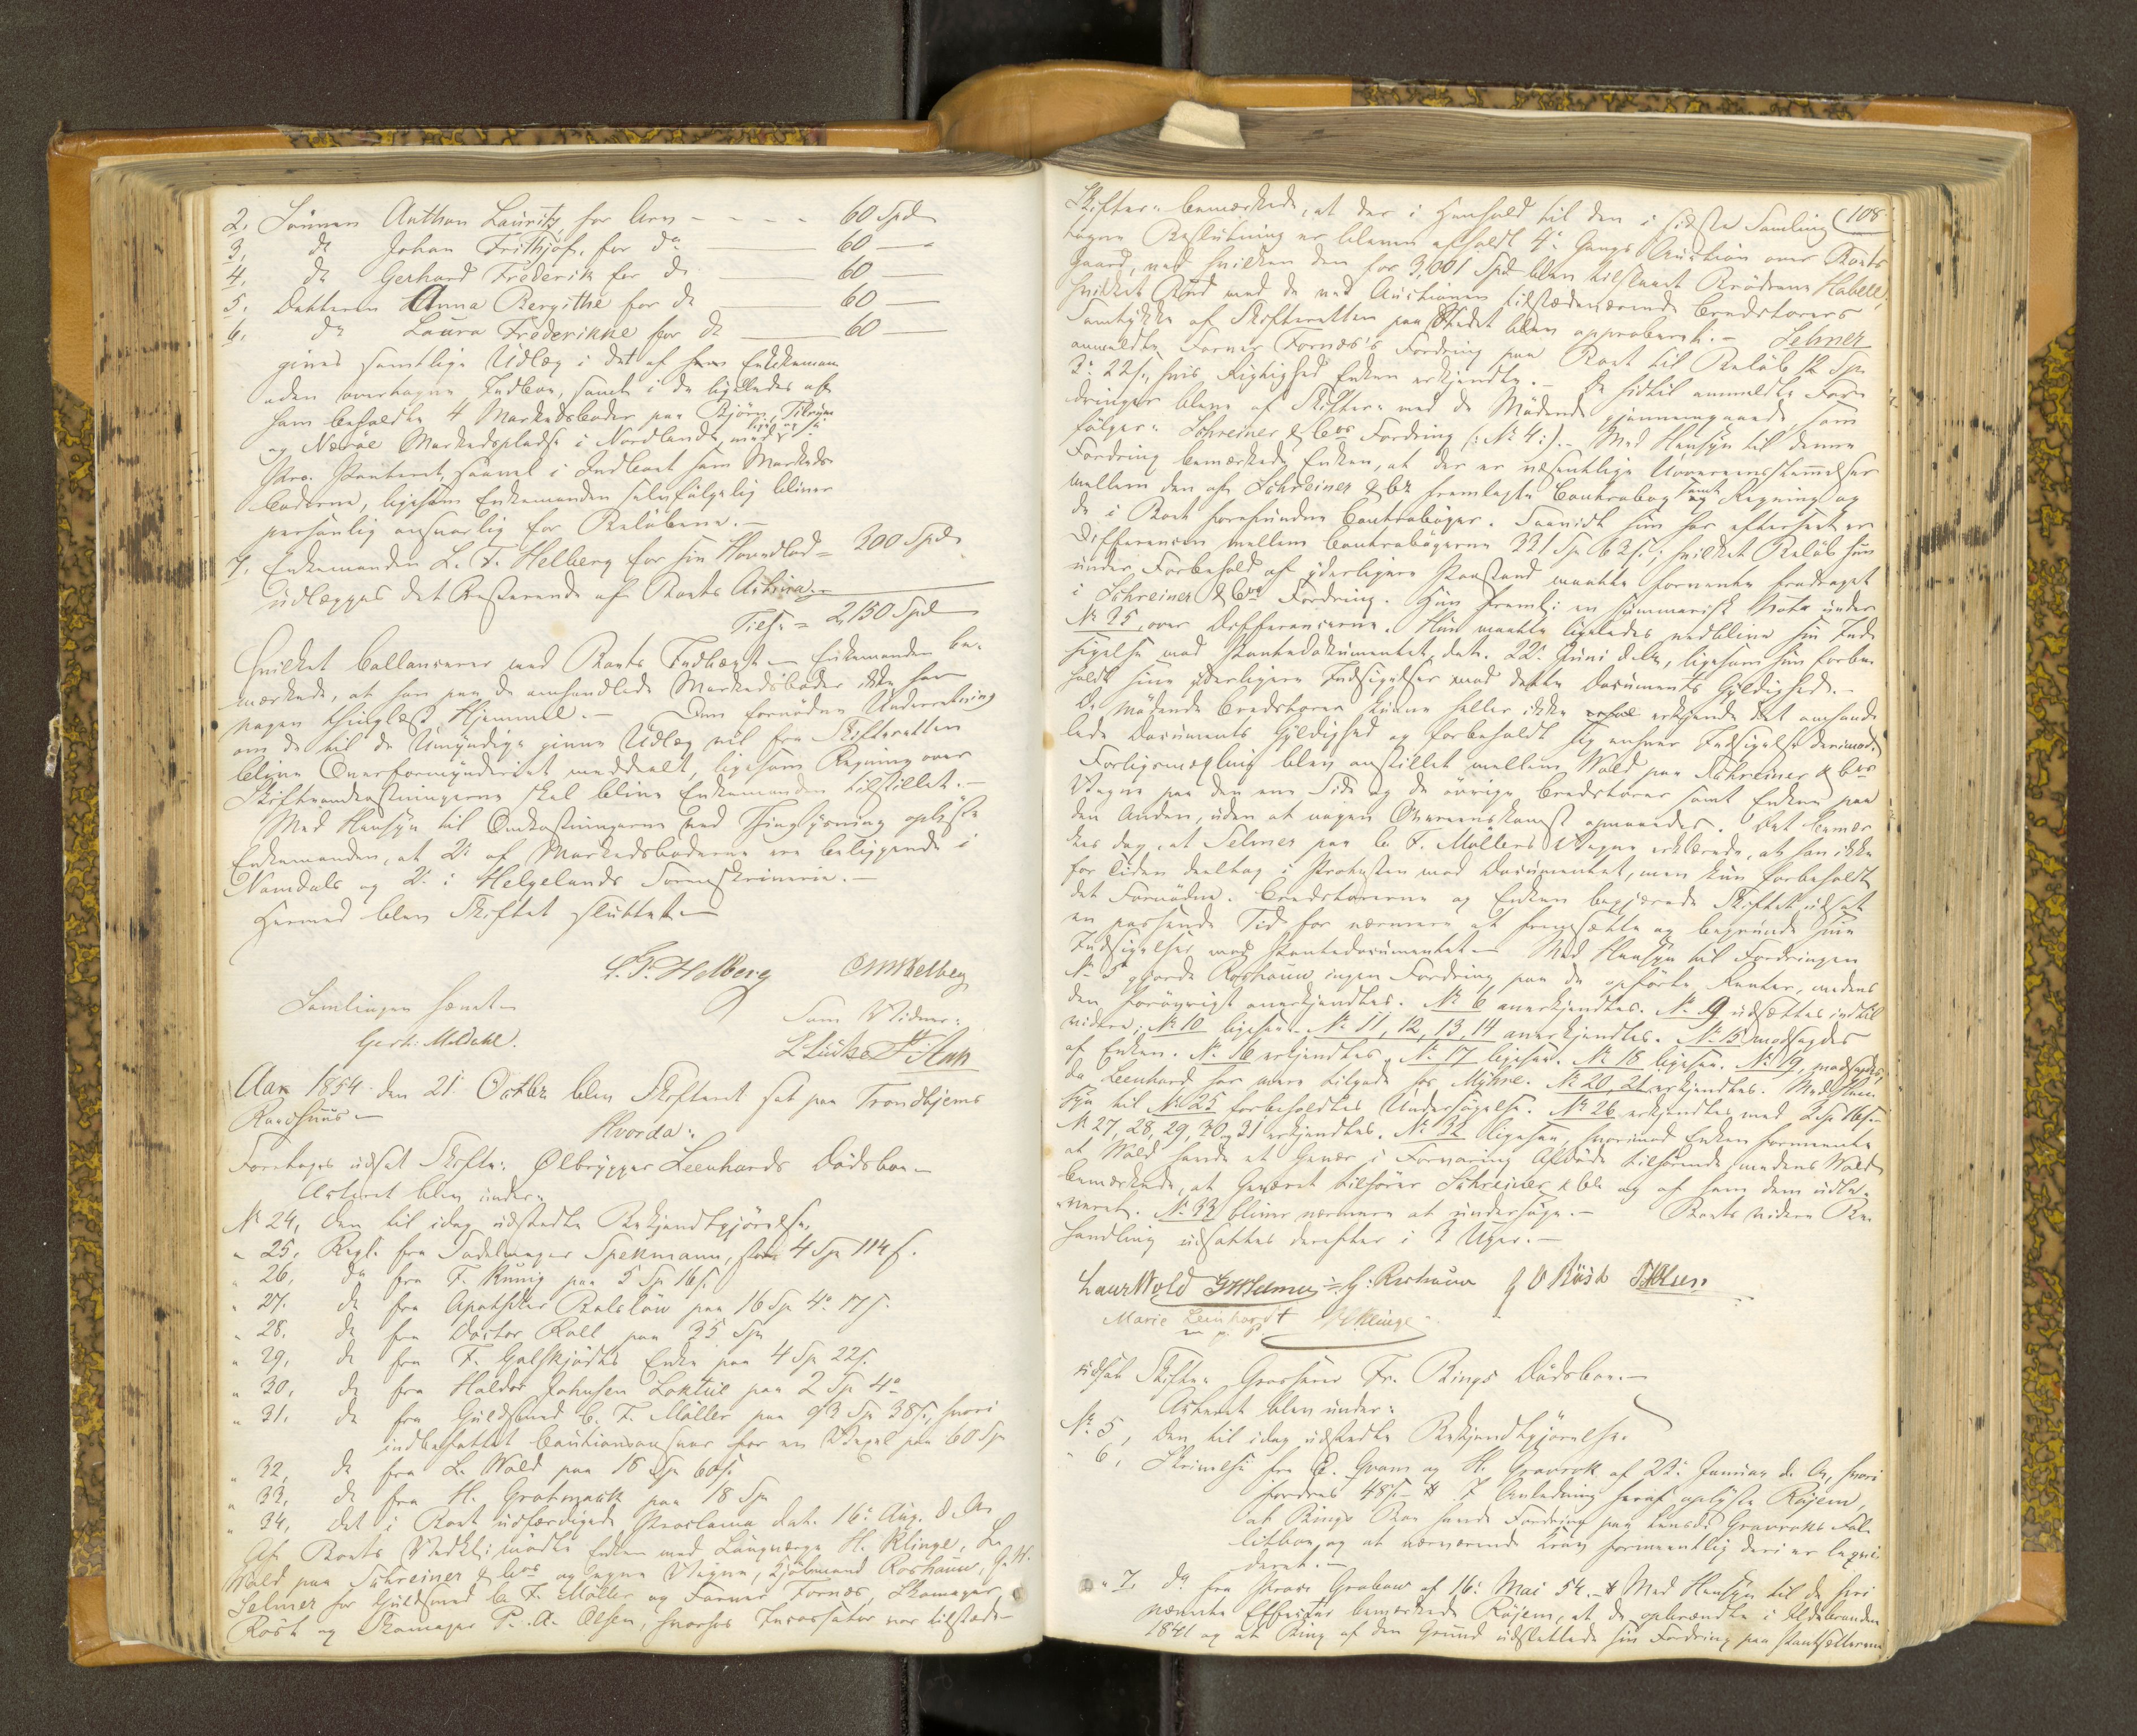 2, Sønnen Anthon Lauritz for Arv - - - - 60 Spd
3, do Johan Frithjof, for do 60 —
4, do Gerhard Frederik for do 60 —
5, Datteren Anna Bergithe for do 60 —
6, do Laura Frederikke for do 60 —
gives samtlige Udlæg i det af Enkeman
den overtagne Indboe, samt i de ligeledes af
ham beholdte 4 Markedsboder paa Bjørn, Tilrum
og Nærøe Markedspladse i Nordlandene, med
Pro. Panteret, saavel i Indboet som Markeds-
boderne, ligesom Enkemanden selvfølgelig bliver
personlig ansvarlig for Beløbene. —
7, Enkemanden L. F. Helberg for sin Hovedlod = 300 Spd
udlægges det Resterende af Boets Activa. —
Tils. = 2,130 Spd
Hvilket ballancerer med Boets Indtægt. — Enkemanden be-
mærkede, at han paa de omhandlede Markedsboder ikke har
nogen thinglæst Hjemmel. — Den fornødne Underretning
om de til de Umyndige givne Udlæg vil fra Skifteretten
blive Overformynderiet meddeelt, ligesom Regning over
Skifteomkostningerne skal blive Enkemanden tilstillet. —
Med Hensyn til Omkostningerne ved Thinglysning oplyste
Enkemanden, at 2de af Markedsboderne ere beliggende i
Namdals og 2de i Helgelands Sorenskriverie. —
Hermed blev Skiftet sluttet. —
L. F. Helberg
Samlingen hævet. —
Gerh. Meldahl.
Som Vidner:
Aar 1854 den 21de Octbr blev Skifteret sat paa Trondhjems
Raadhuus —
Hvorda:
Foretages udsat Skifte: Ølbrygger Leenhards Dødsboe —
Acteret blev under:
No 24, den til idag udstedte Bekjendtgjørelse,
" 25, Regl. fra Sadelmager Spekmann, stor 4 Sp 114 s.
" 26, do fra F. Kunig paa 5 Sp 16 s.
" 27. do fra Apotheker Balslow paa 16 Sp 4o 17 s.
" 28. do fra Doctor Roll paa 35 Sp
" 29, do fra F. Galskjødts Enke paa 4 Sp 22 s.
" 30, do fra Haldor Johnsen Loktue paa 2 Sp 4o
" 31. do fra Guldsmed C. F. Møller paa 93 Sp 38 s., hvori
indbefattet Cautionsansvar for en Vexel paa 60 Sp
" 32, do fra L. Wold paa 18 Sp 60 s.
" 33, do fra H. Grotmack paa 18 Sp
" 34, det i Boet udfærdigede Proclama dat. 16de Aug. d. A.
Af Boets Vedk: mødte Enken med Laugværge H. Klinge, L.
Wold paa Schreiner & Cos og egne Vegne, Kjøbmand Roshauw, G. H.
Selmer for Guldsmed C. F. Møller og Farver Fornæs, Skomager
Røst og Skomager P. A. Olsen, hvorhos Incassator var tilstede —
108
Skifter: bemærkede, at der i Henhold til den i sidste Samling
tagne Beslutning er bleven afholdt 4de Gangs Auction over Boets
Gaard, ved hvilken den for 3,001 Spd blev tilslaaet Brødrene Habell,
hvilket Bud med de ved Auctionen tilstedeværende Creditorers
Samtykke af Skifteretten paa Stedet blev approberet. — Selmer
anmeldte Farver Fornæs's Fordring paa Boet til Beløb 12 Sp
3o 22 s., hvis Rigtighed Enken erkjendte. — De hidtil anmeldte For-
dringer bleve af Skifter: med de Mødende gjennemgaaede, som
følger: Schreiner & Cos Fordring (: No 4 :). — Med Hensyn til denne
Fordring bemærkede Enken, at der er væsentlige Uovereensstemmelser
mellem den af Schreiner & Co fremlagte Contrabog samt Regning og
de i Boet forefundne Contrabøger. Saavidt hun har efterseet er
Differencen mellem Contrabøgerne 331 Sp 62 s.; hvilket Beløb hun
under Forbehold af yderligere Paastand maatte formente fradraget
i Schreiner & Cos Fordring. Hun freml: en summarisk Nota under
No 35 over Differencerne. Hun maatte ligeledes vedblive sin Ind-
sigelse mod Pantedokumentet, dat. 22de Juni d. A., ligesom hun forbe-
holdt sine yderligere Indsigelser mod dette Documents Gyldighed. —
De Mødende Creditorer kunne heller ikke erkjende det omhand-
lede Documents Gyldighed og forbeholdt sig enhver Indsigelse derimod.
Forligsmægling blev anstillet mellem Wold paa Schreiner & Cos
Vegne paa den ene Side og de øvrige Creditorer samt Enken paa
den Anden, uden at nogen Overeenskomst opnaaedes. Det bemær-
kes dog, at Selmer paa C. F. Møllers Vegne erklærede, at han ikke
for Tiden deeltog i Protesten mod Documentet, men kun forbeholdt
det Fornødne. Creditorerne og Enken begjærede Skiftet udsat
en passende Tid for nærmere at fremsætte og begrunde sine
Indsigelser mod Pantedocumentet. — Med Hensyn til Fordringen
No 5 gjorde Roshauw ingen Fordring paa de opførte Renter, medens
den forøvrigt anerkjendtes. No 6 anerkjendtes. No 9 udsættes indtil
videre. No 10 ligesaa. No 11, 12, 13, 14 anerkjendtes. No 15 modsagdes
af Enken. No 16 erkjendtes. No 17 ligesaa. No 18 ligesaa. No 19, modsagdes,
da Leenhard har mere tilgode hos Myhre. No 20, 21 erkjendtes. Med Hen-
syn til No 25 forbeholdtes Undersøgelse. No 26 erkjendtes med 2 Sp 16 s. —
No 27, 28, 29, 30 og 31 erkjendtes. No 32 ligesaa, hvorimod Enken formeente
at Wold havde et Gevær i Forvaring Afdøde tilhørende, medens Wold
bemærkede, at Geværet tilhører Schreiner & Co og af ham dem udle-
veret. No 33 bliver nærmere at undersøge. — Boets videre Be-
handling udsattes derefter i 3 Uger. —
Laur Wold GHSelmer G: Roshauw G O Røst
Marie Leinhardt HKlinge
m. p. P
udsat Skifte: Grosserer Fr. Rings Dødsboe. —
Acteret blev under:
No 5, den til idag udstedte Bekjendtgjørelse.
" 6, Skrivelse fra E. Qvam og H. Gravrok af 23de Januar d. A., hvori
fordres 48 s. — I Anledning heraf oplyste Røjem,
at Rings Boe havde Fordring paa Lensds Gravroks Fal-
litboe, og at nærværende Krav formeentlig deri er liqvi-
deret. —
" 7, do fra Prov. Grabow af 16de Mai 54. — Med Hensyn til de heri
nævnte Effecter bemærkede Røjem, at de opbrændte i Ildebranden
1841 og at Ring af den Grund udslettede sin Fordring paa Pantsætterne